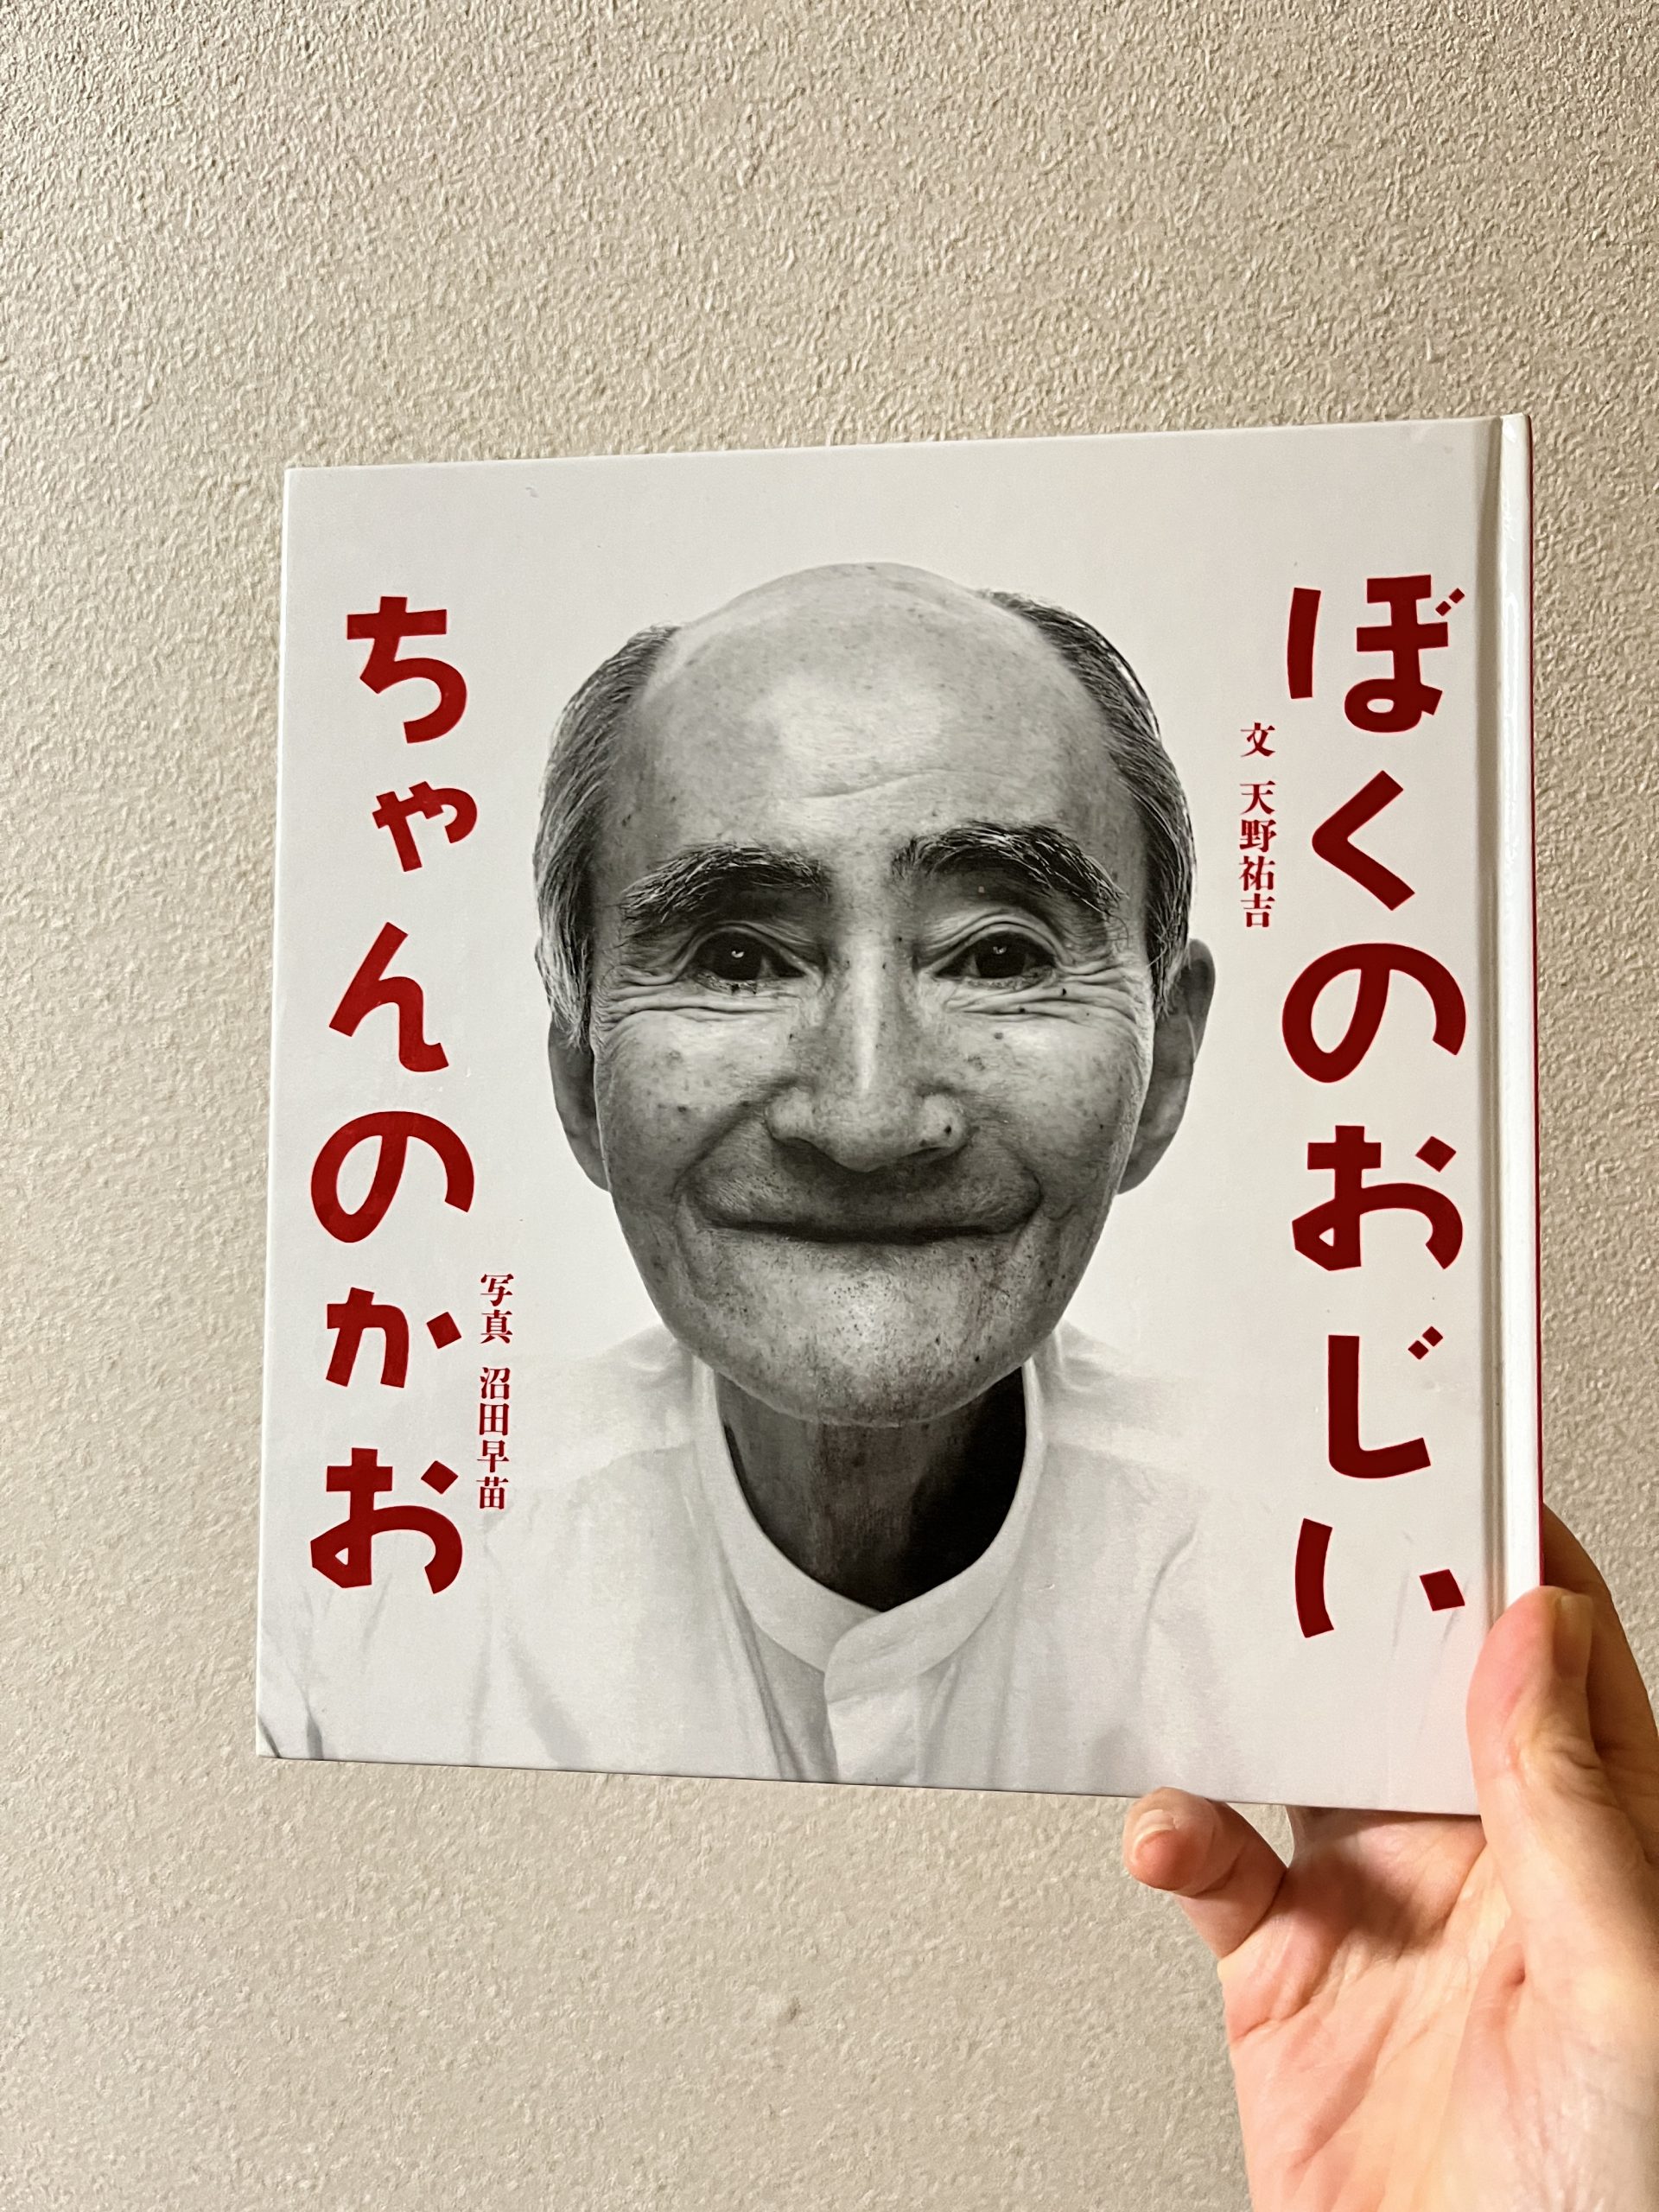 ぼくのおじい
文 天野祐吉
写真 沼田早苗
ちゃんのかお